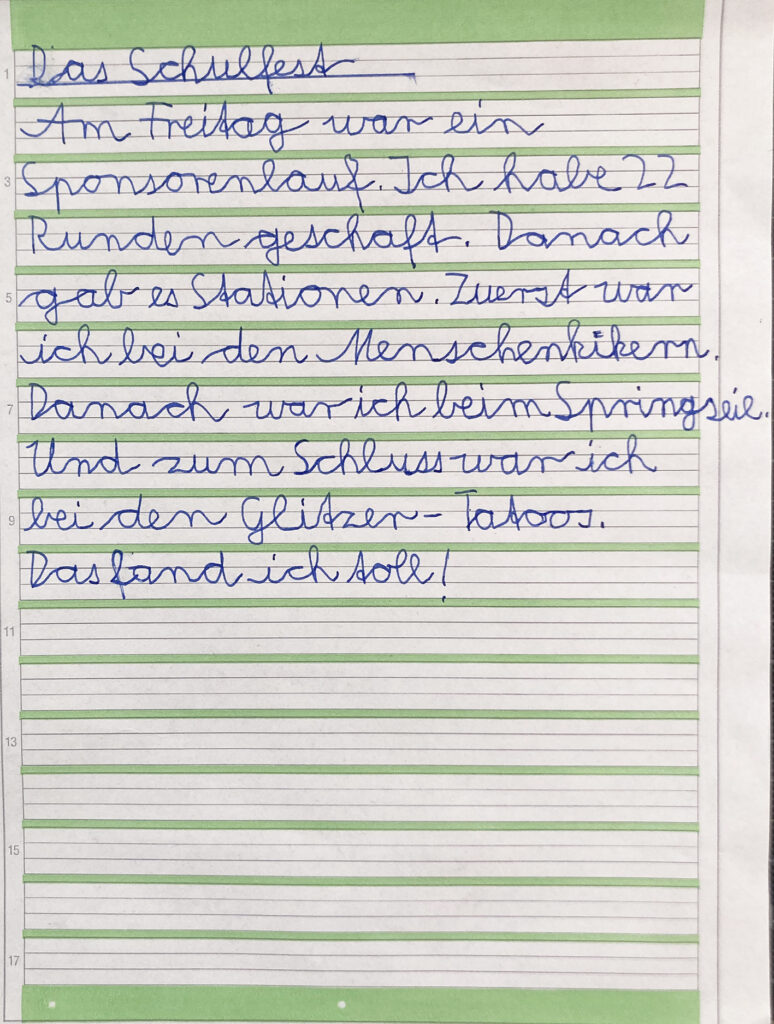 1 Das Schulfest
Am Freitag war ein
3 Sponsorenlauf. Ich habe 22
Runden geschaft. Danach
5 gab es Stationen. Zuerst war
ich bei den Menschenkikern.
7 Danach war ich beim Springseil.
Und zum Schluss war ich
9 bei den Glitzer-Tatoos.
Das fand ich toll!
11
13
15
17